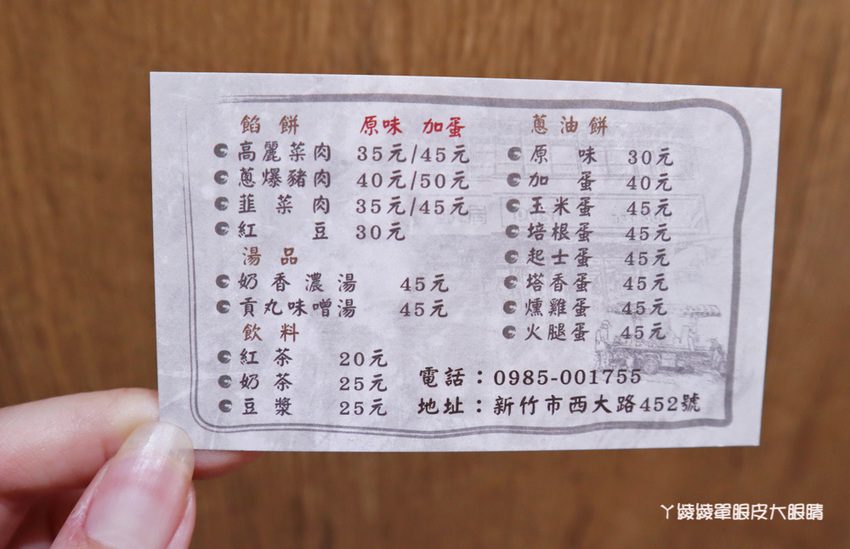 餡餅 原味 加蛋
高麗菜肉 35元/45元
蔥爆豬肉 40元/50元
韭菜肉 35元/45元
紅豆 30元
湯品
奶香濃湯 45元
貢丸味噌湯 45元
飲料
紅茶 20元
奶茶 25元
豆漿 25元
蔥油餅
原味 30元
加蛋 40元
玉米蛋 45元
培根蛋 45元
起士蛋 45元
塔香蛋 45元
燻雞蛋 45元
火腿蛋 45元
電話：0985-001755
地址：新竹市西大路452號
ㄚ綾綾單眼皮大眼睛